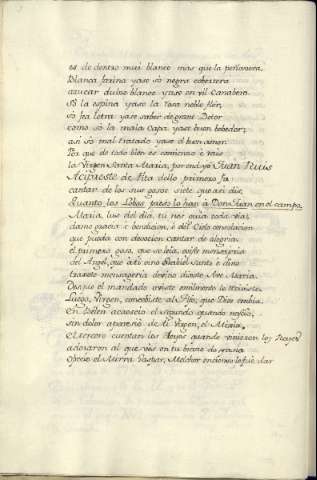 es de dentro mui blanco mas que la peñavera.
Blanca farina yase so negra cobertera
azucar dulze blanco yase en vil Canabera
So la espina yase la rosa noble flor,
so fea letra yase saber de grant Dotor
como so la mala capa yase buen bebedor;
asi so mal tratado yase el buen amor.
Por que de todo bien es comienzo e rais
la Virgen Santa Maria, por end yo Juan Ruiis
Acipreste de Fita dello primero fis
cantar de los sus gosos siete que asi dis,
Quanto los Lobos preso lo han à Don Juan en el campo
Maria, lus del dia, tu me guia toda via,
dame gracia e bendicion, e del Cielo consolacion
que pueda con devocion cantar de alegria
el primero goso, que se lea, que te mensageria
del Angel, que à ti vino Grabiel Santo è dino
traxote mensageria divina dixote Ave Maria.
Desque el mandado oviste omilmente lo recibiste
Luego, Virgen, concebiste al Fijo, que Dios embia.
En Belen acaecio el segundo quando nascio,
sin dolor aparesio de ti Virgen, el Mexia,
El tercero cuentan los Leyes quando vinieron los Reyes
adoraron al que veis en tu brazo do yasia
Ofrecio el Mirra Gaspar, Melchor encienso le fue dar